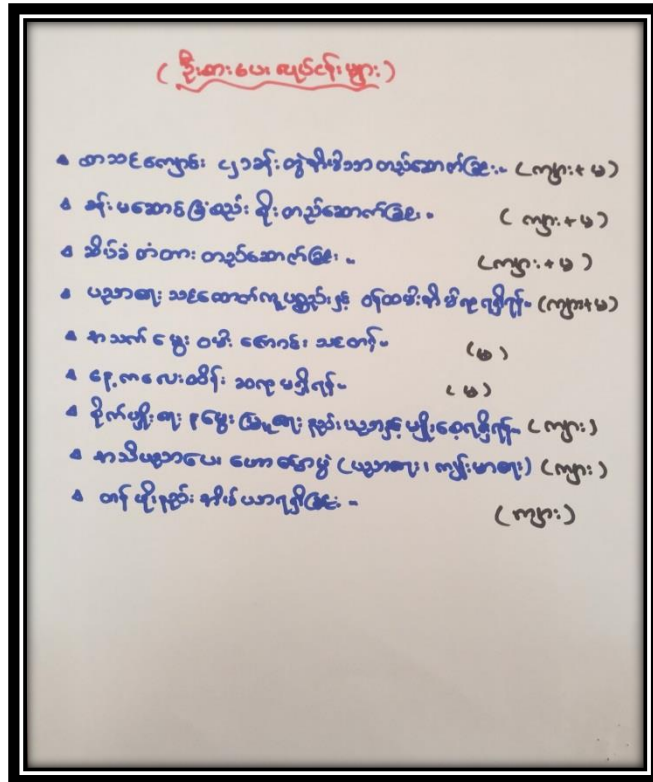 ( ဦးစားပေး လုပ်ငန်းများ )
စာသင်ကျောင်း ၎၂ခန်းတွဲ အိမ်သာ တည်ဆောက်ခြင်း။ (ကျား+မ)
ခန်းမဆောင် ခြံစည်းရိုး တည်ဆောက်ခြင်း။ (ကျား+မ)
ဆိပ်ခံ တံတား တည်ဆောက်ခြင်း။ (ကျား+မ)
ပညာရေး သင်ထောက်ကူပစ္စည်းနှင့် ဝန်ထမ်းအိမ်ရာ ရရှိရန်။ (ကျား+မ)
အသက်မွေး ဝမ်းကျောင်း သင်တန်း။ (မ)
နေ့ကလေးထိန်း ဆရာမရှိရန်။ (မ)
စိုက်ပျိုးရေး နှင့်မွေးမြူရေး နည်းပညာနှင့် မျိုးစေ့ရရှိရန်။ (ကျား)
အသိပညာပေး ဟောပြောပွဲ (ပညာရေး၊ ကျန်းမာရေး) (ကျား)
တန်ဖိုးနည်း အိမ်ယာရရှိခြင်း။ (ကျား)